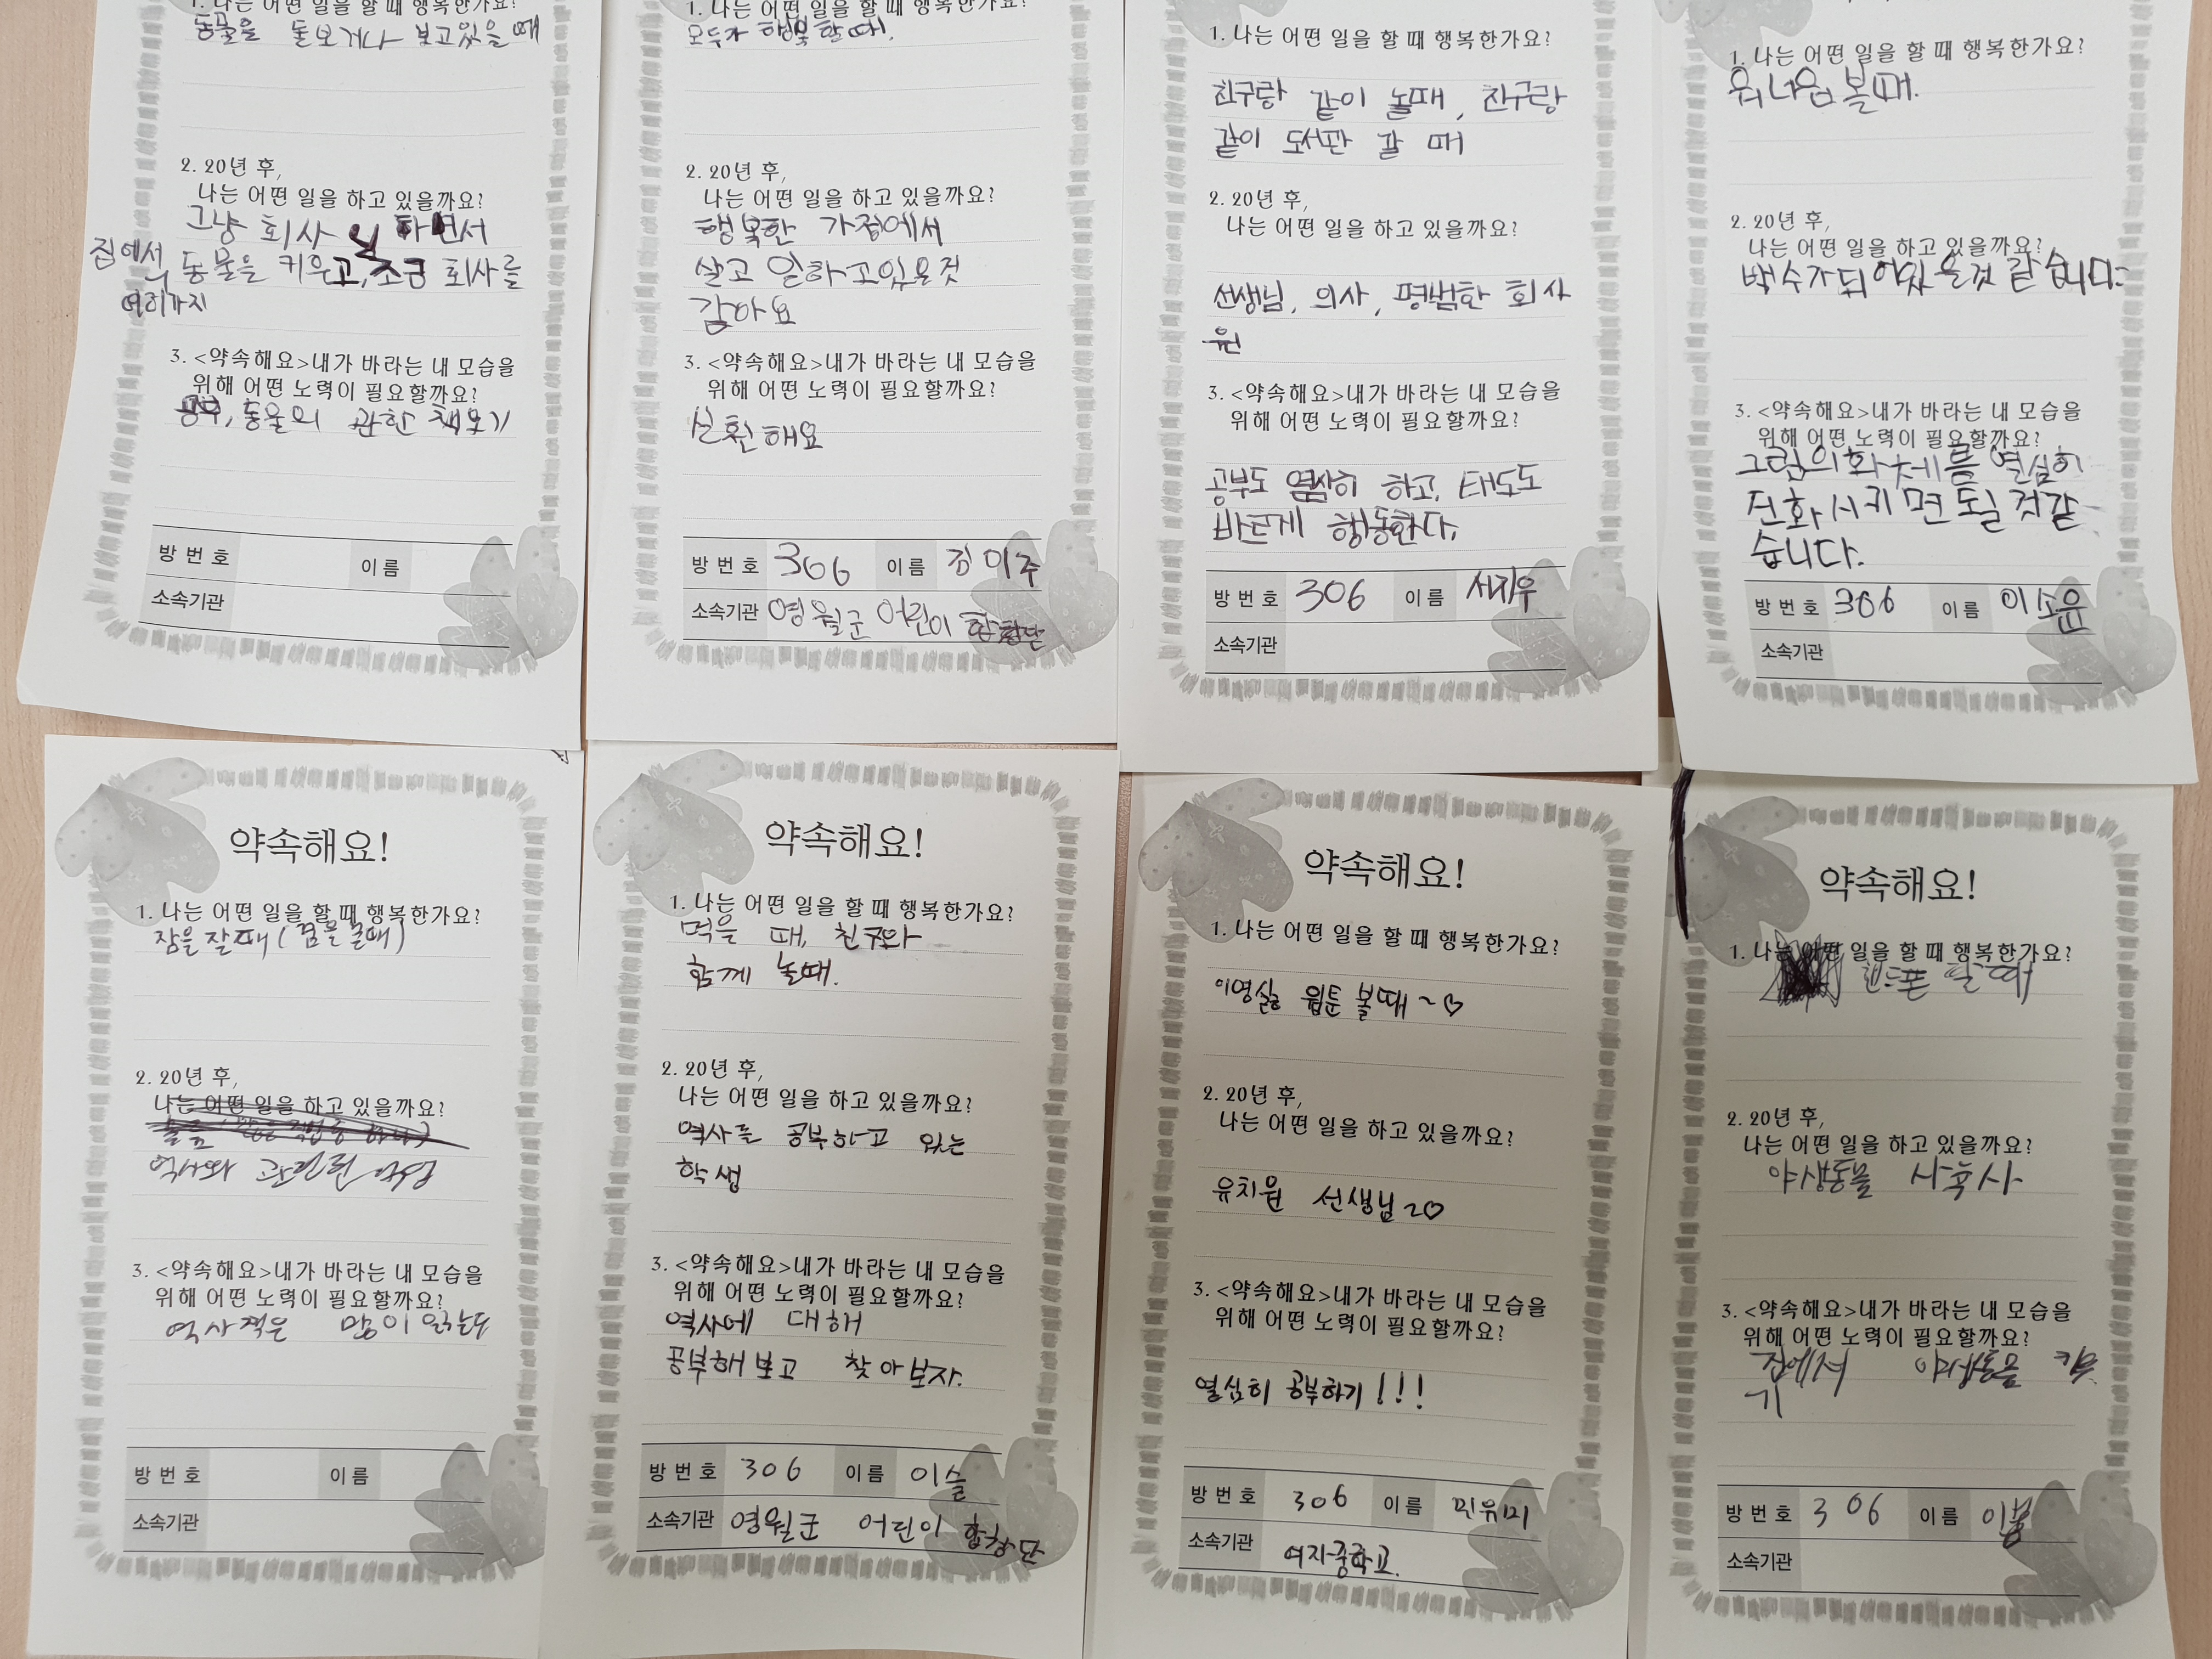 1. 나는 어떤 일을 할 때 행복한가요?
동물을 돌보거나 보고있을 때
2. 20년 후,
나는 어떤 일을 하고 있을까요?
그냥 회사 일 하면서
집에서 동물을 키우고, 조금 회사를
3. <약속해요>내가 바라는 내 모습을
위해 어떤 노력이 필요할까요?
공부, 동물의 관한 책보기
방 번 호 이 름
소속기관
1. 나는 어떤 일을 할 때 행복한가요?
모두가 행복할때.
2. 20년 후,
나는 어떤 일을 하고 있을까요?
행복한 가정에서
살고 일하고있을것
같아요
3. <약속해요>내가 바라는 내 모습을
위해 어떤 노력이 필요할까요?
실천해요
방 번 호 306 이 름 김이주
소속기관 영월군 어린이 합창단
1. 나는 어떤 일을 할 때 행복한가요?
친구랑 같이 놀때, 친구랑
같이 도서관 갈 때
2. 20년 후,
나는 어떤 일을 하고 있을까요?
선생님, 의사, 평범한 회사
원
3. <약속해요>내가 바라는 내 모습을
위해 어떤 노력이 필요할까요?
공부도 열심히 하고, 태도도
바르게 행동한다.
방 번 호 306 이 름 서지우
소속기관
1. 나는 어떤 일을 할 때 행복한가요?
볼때.
2. 20년 후,
나는 어떤 일을 하고 있을까요?
백수가 되어있을것 같습니다.
3. <약속해요>내가 바라는 내 모습을
위해 어떤 노력이 필요할까요?
그림의화체를 열심히
진화시키면 될 것같
습니다.
방 번 호 306 이 름 이소윤
소속기관
약속해요!
1. 나는 어떤 일을 할 때 행복한가요?
잠을 잘때 (꿈을 꿀때)
2. 20년 후,
나는 어떤 일을 하고 있을까요?
역사와 관련된 직업
3. <약속해요>내가 바라는 내 모습을
위해 어떤 노력이 필요할까요?
역사책을 많이 읽는다
방 번 호 이 름
소속기관
약속해요!
1. 나는 어떤 일을 할 때 행복한가요?
먹을 때, 친구와
함께 놀때.
2. 20년 후,
나는 어떤 일을 하고 있을까요?
역사를 공부하고 있는
학생
3. <약속해요>내가 바라는 내 모습을
위해 어떤 노력이 필요할까요?
역사에 대해
공부해보고 찾아보자.
방 번 호 306 이 름 이슬
소속기관 영월군 어린이 합창단
약속해요!
1. 나는 어떤 일을 할 때 행복한가요?
이영싫 웹툰 볼때~♡
2. 20년 후,
나는 어떤 일을 하고 있을까요?
유치원 선생님~♡
3. <약속해요>내가 바라는 내 모습을
위해 어떤 노력이 필요할까요?
열심히 공부하기!!!
방 번 호 306 이 름 민유미
소속기관 여자중학교.
약속해요!
1. 나는 어떤 일을 할 때 행복한가요?
핸드폰 할 때
2. 20년 후,
나는 어떤 일을 하고 있을까요?
야생동물 사육사
3. <약속해요>내가 바라는 내 모습을
위해 어떤 노력이 필요할까요?
집에서 야생동물 키우
기
방 번 호 306 이 름 이봄
소속기관